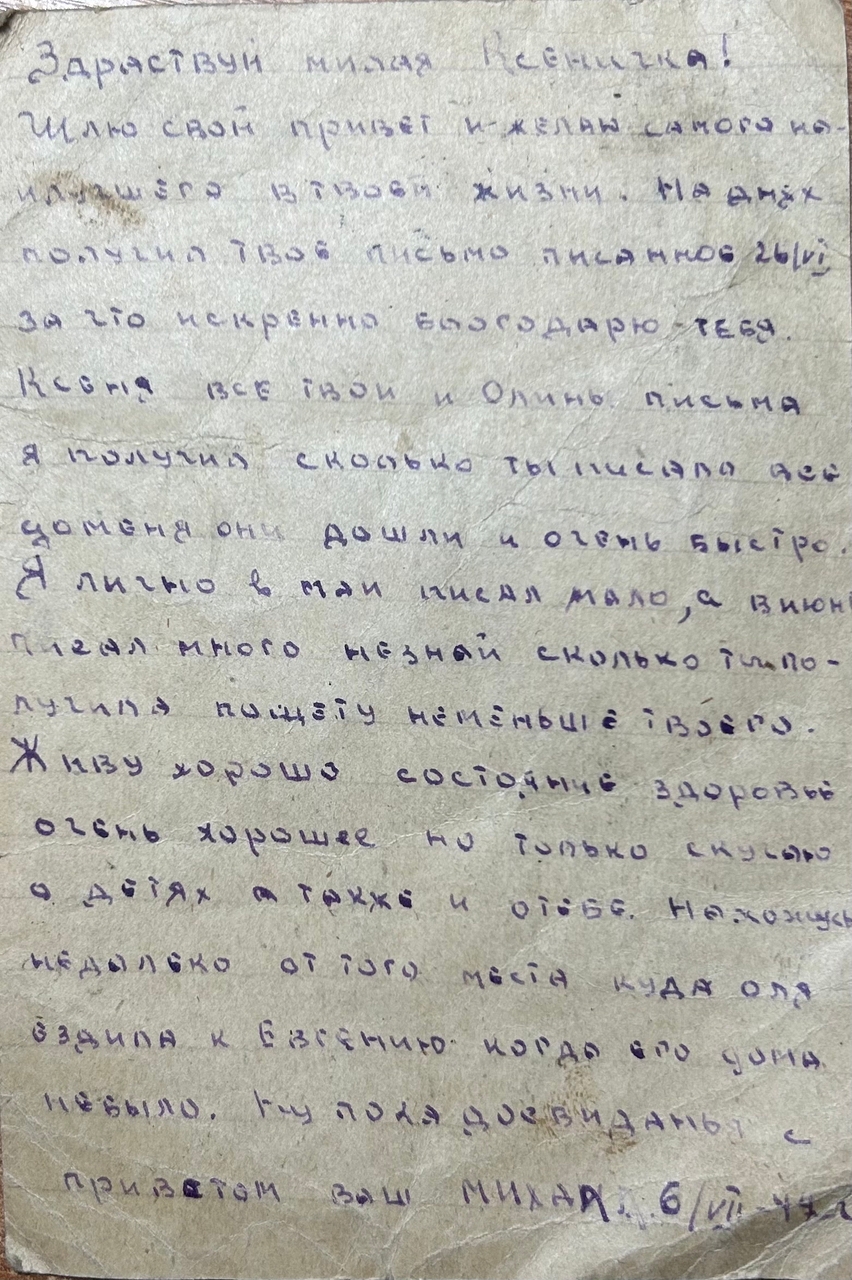 Здраствуй милая Ксеничка!
Шлю свой привет и желаю самого на-
илучшего в твоей жизни. На днях
получил твоё письмо писанное 26/VI
за что искренно благодарю тебя.
Ксеня все твои и Олины письма
я получил сколько ты писала все
доменя они дошли и очень быстро.
Я лично в маи писал мало, а виюни
писал много незнай сколько ты по-
лучила пощету неменьше твоего.
Живу хорошо состояние здоровье
очень хорошее но только скучаю
о детях а также и отебе. Нахожусь
недалеко от того места куда оля
ездила к Евгению когда его дома
небыло. Ну пока досвиданья с
приветом ваш Михаил 6/VII-44 г